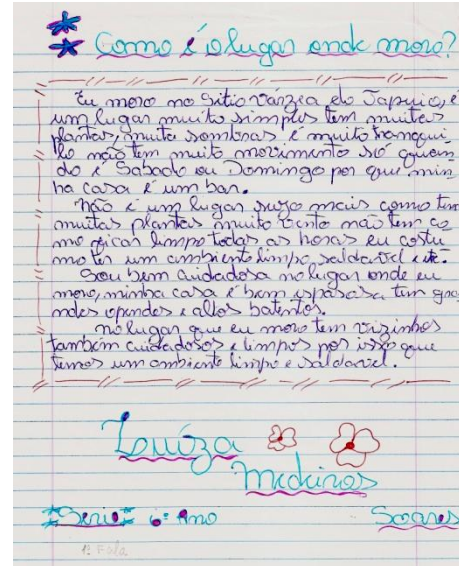 Como é o lugar onde moro?
Eu moro no Sitio várzea do Tapuio, é
um lugar muito simples tem muitas
plantas, muita sombras é muito tranqui
lo não tem muito movimento só quan
do é Sabado ou Domingo por que min
ha casa é um bar.
não é um lugar sujo mais como tem
muitas plantas muito vento não tem co
mo ficar limpo todas as horas eu costu
mo ter um ambiente limpo, saldavel
Sou bem cuidadosa no lugar onde eu
moro, minha casa é bem espasosa tem gra
ndes e altos batentos.
no lugar que eu moro tem vizinhos
também cuidadosos e limpos por isso que
temos um ambiente limpo e saldavel.
Louiza
Medeiros
Serie 6º Ano Soares